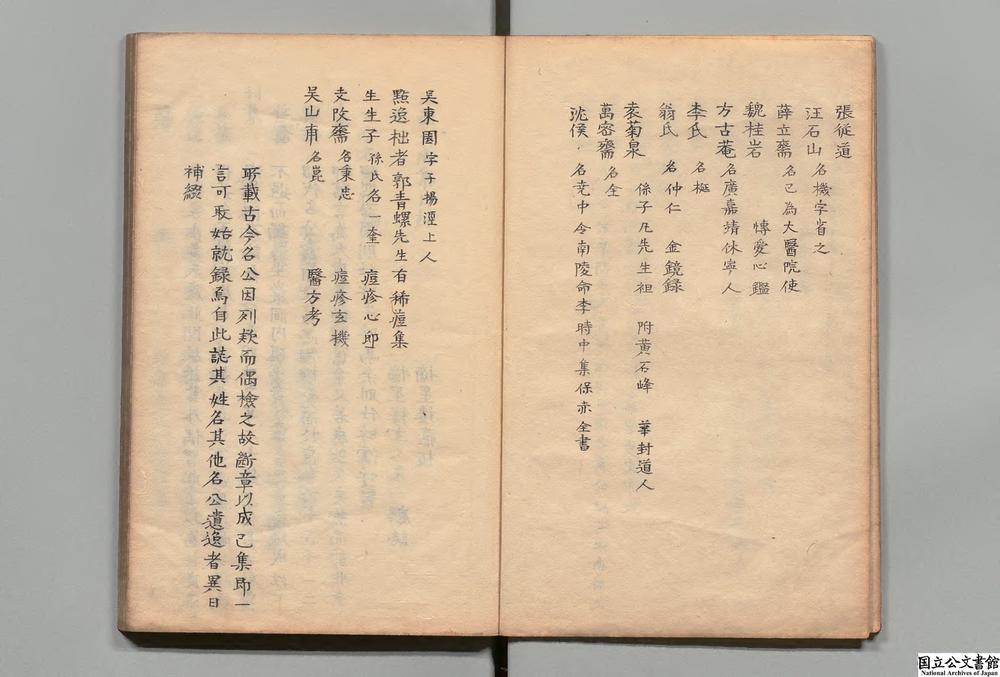 張從道
汪石山 名機字省之
薛立齋 名己為大醫院使
魏桂岩 博愛心鑑
方古菴 名廣嘉靖休寧人
李氏 名梴
翁氏 名仲仁 金鏡錄
袁菊泉 係子凡先生祖 附黃石峰 華封道人
萬密齋 名全
沈侯 名堯中令南陵命李時中集保赤全書
吴東園字子揚涇上人
點逸拙者郭青螺先生有稀痘集
生生子 孫氏名一奎 痘疹心印
支改齋 名秉忠 痘疹玄機
吴山甫 名崑 醫方考
所載古今名公因列欵而偶檢之故斷章以成已集即一
言可取始就録焉自此誌其姓名其他名公遺逸者異日
補綴
国立公文書館
National Archives of Japan